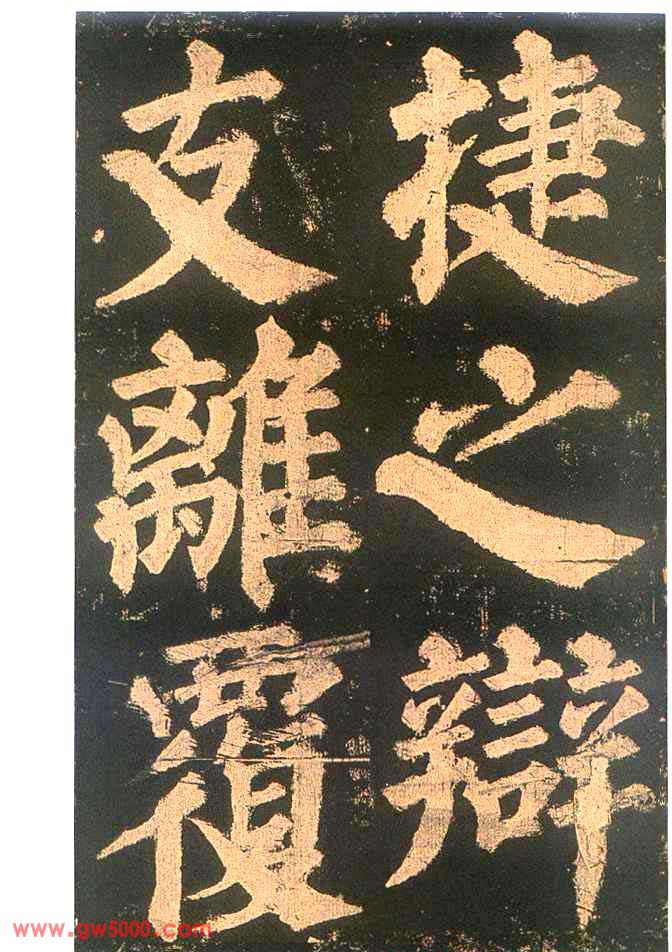 捷之辯
支離覆
www.gw5000.com